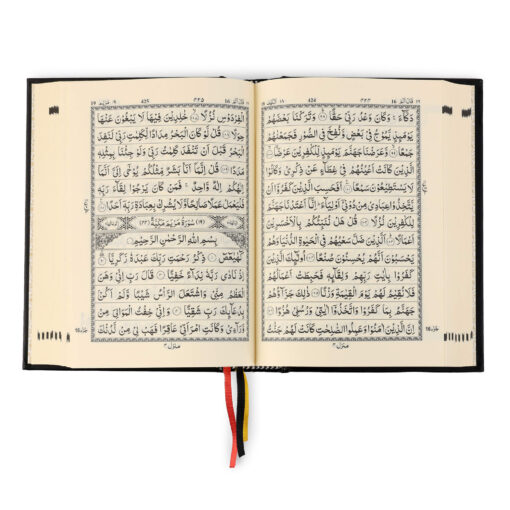 دَكَّآءَ ۚ وَكَانَ وَعْدُ رَبِّيْ حَقًّا ۞ وَتَرَكْنَا بَعْضَهُمْ
يَوْمَئِذٍ يَّمُوْجُ فِيْ بَعْضٍ وَّنُفِخَ فِي الصُّوْرِ فَجَمَعْنٰهُمْ
جَمْعًا ۞ وَّعَرَضْنَا جَهَنَّمَ يَوْمَئِذٍ لِّلْكٰفِرِيْنَ عَرْضًا ۞
الَّذِيْنَ كَانَتْ اَعْيُنُهُمْ فِيْ غِطَآءٍ عَنْ ذِكْرِيْ وَكَانُوْا
لَا يَسْتَطِيْعُوْنَ سَمْعًا ۞ اَفَحَسِبَ الَّذِيْنَ كَفَرُوْٓا اَنْ
يَّتَّخِذُوْا عِبَادِيْ مِنْ دُوْنِيْٓ اَوْلِيَآءَ ؕ اِنَّآ اَعْتَدْنَا جَهَنَّمَ
لِلْكٰفِرِيْنَ نُزُلًا ۞ قُلْ هَلْ نُنَبِّئُكُمْ بِالْاَخْسَرِيْنَ
اَعْمَالًا ۞ اَلَّذِيْنَ ضَلَّ سَعْيُهُمْ فِي الْحَيٰوةِ الدُّنْيَا وَهُمْ
يَحْسَبُوْنَ اَنَّهُمْ يُحْسِنُوْنَ صُنْعًا ۞ اُولٰٓئِكَ الَّذِيْنَ
كَفَرُوْا بِاٰيٰتِ رَبِّهِمْ وَلِقَآئِهٖ فَحَبِطَتْ اَعْمَالُهُمْ
فَلَا نُقِيْمُ لَهُمْ يَوْمَ الْقِيٰمَةِ وَزْنًا ۞ ذٰلِكَ جَزَآؤُهُمْ
جَهَنَّمُ بِمَا كَفَرُوْا وَاتَّخَذُوْٓا اٰيٰتِيْ وَرُسُلِيْ هُزُوًا ۞
اِنَّ الَّذِيْنَ اٰمَنُوْا وَعَمِلُوا الصّٰلِحٰتِ كَانَتْ لَهُمْ جَنّٰتُ
الْفِرْدَوْسِ نُزُلًا ۞ خٰلِدِيْنَ فِيْهَا لَا يَبْغُوْنَ عَنْهَا
حِوَلًا ۞ قُلْ لَّوْ كَانَ الْبَحْرُ مِدَادًا لِّكَلِمٰتِ رَبِّيْ لَنَفِدَ
الْبَحْرُ قَبْلَ اَنْ تَنْفَدَ كَلِمٰتُ رَبِّيْ وَلَوْ جِئْنَا بِمِثْلِهٖ
مَدَدًا ۞ قُلْ اِنَّمَآ اَنَا بَشَرٌ مِّثْلُكُمْ يُوْحٰٓى اِلَيَّ اَنَّمَآ
اِلٰهُكُمْ اِلٰهٌ وَّاحِدٌ ۚ فَمَنْ كَانَ يَرْجُوْا لِقَآءَ رَبِّهٖ
فَلْيَعْمَلْ عَمَلًا صَالِحًا وَّلَا يُشْرِكْ بِعِبَادَةِ رَبِّهٖٓ اَحَدًا ۞
سُوْرَةُ مَرْيَمَ مَكِّيَّةٌ
بِسْمِ اللّٰهِ الرَّحْمٰنِ الرَّحِيْمِ
كٓهٰيٰعٓصٓ ۞ ذِكْرُ رَحْمَتِ رَبِّكَ عَبْدَهٗ زَكَرِيَّا ۞
اِذْ نَادٰى رَبَّهٗ نِدَآءً خَفِيًّا ۞ قَالَ رَبِّ اِنِّيْ وَهَنَ
الْعَظْمُ مِنِّيْ وَاشْتَعَلَ الرَّاْسُ شَيْبًا وَّلَمْ اَكُنْۢ
بِدُعَآئِكَ رَبِّ شَقِيًّا ۞ وَاِنِّيْ خِفْتُ الْمَوَالِيَ مِنْ
وَّرَآءِيْ وَكَانَتِ امْرَاَتِيْ عَاقِرًا فَهَبْ لِيْ مِنْ لَّدُنْكَ